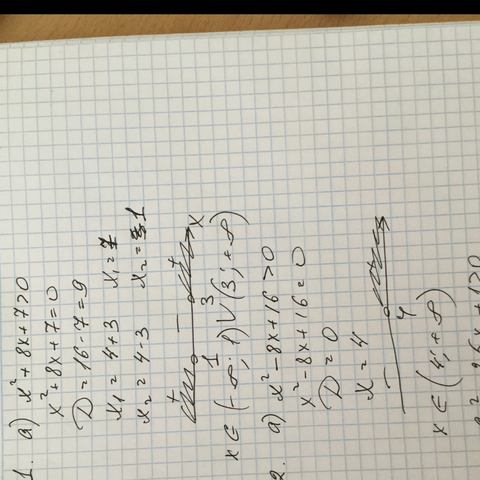 1. a) x² + 8x + 7 > 0
x² + 8x + 7 = 0
D = 16 - 7 = 9
x₁ = 4 + 3 x₁ = 7
x₂ = 4 - 3 x₂ = 1
+ − + x
1 3
x ∈ (-∞; 1) ∨ (3; +∞)
2. a) x² - 8x + 16 > 0
x² - 8x + 16 = 0
D = 0
x = 4
− 4
x ∈ (4; +∞)